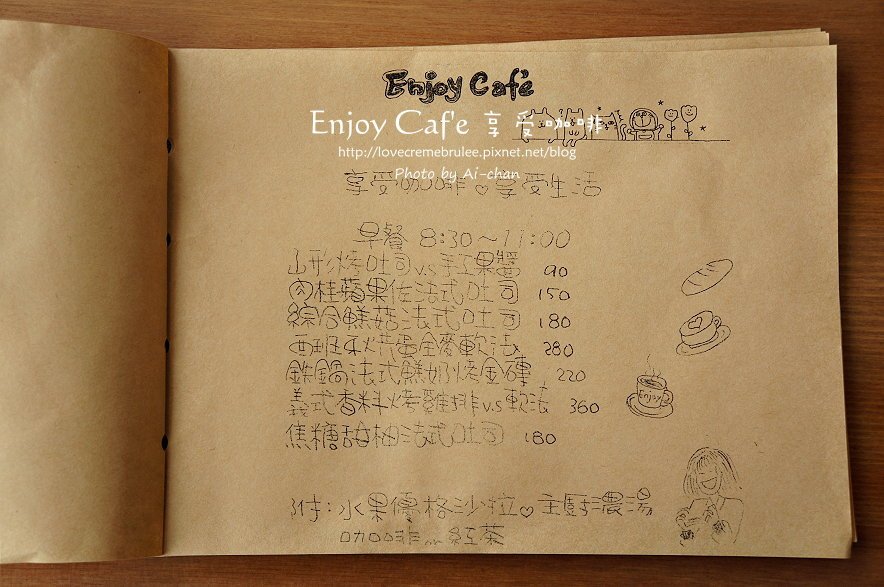 Enjoy Cafe
Enjoy Caf'e 享受咖啡
http://lovecremebrulee.pixnet.net/blog
Photo by Ai-chan
享受咖啡♡享受生活
早餐 8:30~11:00
山形烤吐司v.s手工果醬 90
肉桂蘋果佐法式吐司 150
綜合鮮菇法式吐司 180
西班牙烘蛋全餐軟法 280
鉄鍋法式鮮奶烤金磚 220
義式香料烤雞排v.s軟法 360
焦糖甜柚法式吐司 180
附:水果優格沙拉♡主廚濃湯
咖啡or紅茶
Enjoy